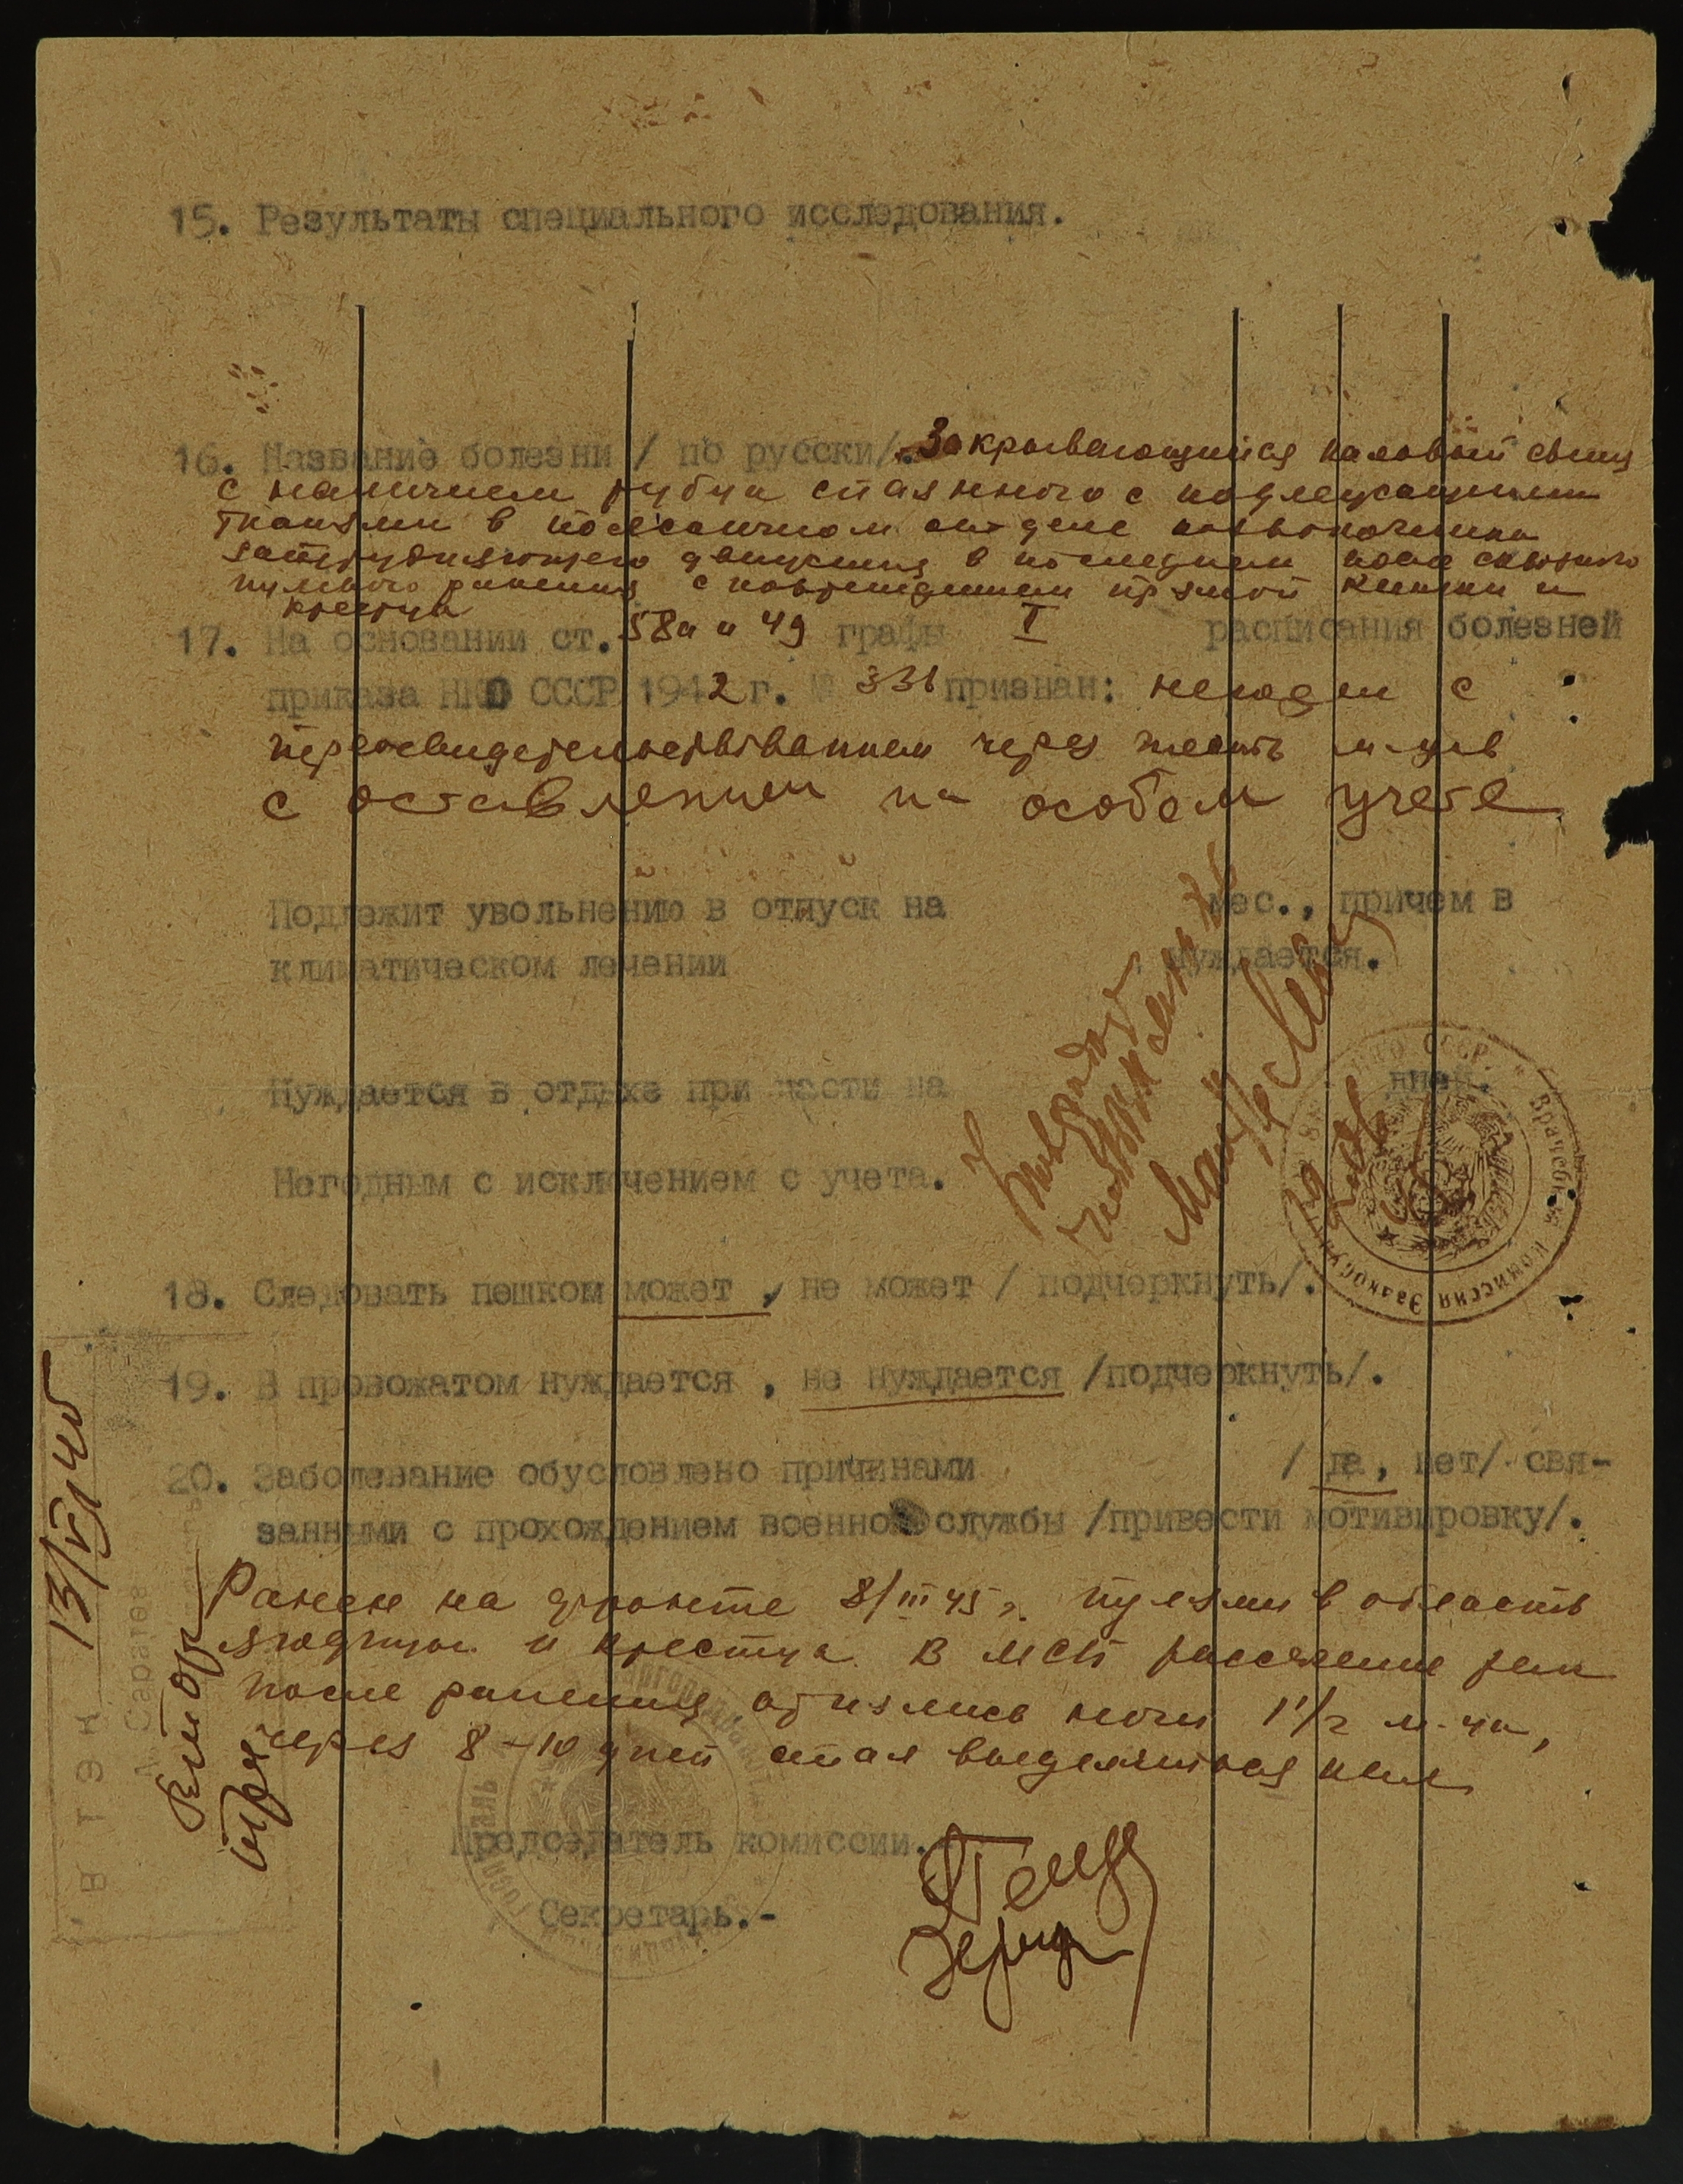 15. Результаты специального исследования.
16. Название болезни / по русски/. Закрывающийся каловый свищ
с наличием рубца спаянного с подлежащими
тканями в поясничном отделе позвоночника
затрудняющего движения в последнем после сквозного
пулевого ранения с повреждением прямой кишки и
крестца
17. На основании ст. 58а и 49 графы I расписания болезней
приказа НКО СССР 1942 г. № 336 признан: негоден с
переосвидетельствованием через шесть м-цев
с оставлением на особом учете
Подлежит увольнению в отпуск на мес., причем в
климатическом лечении нуждается.
Нуждается в отдыхе при части на дней.
Негодным с исключением с учета.
18. Следовать пешком может, не может / подчеркнуть/.
19. В провожатом нуждается, не нуждается /подчеркнуть/.
20. Заболевание обусловлено причинами / да, нет/ свя-
занными с прохождением военной службы /привести мотивировку/.
Ранен на фронте 8/III 45 г. пулями в область
ягодицы и крестца. В МСБ рассечение ран
После ранения отнялись ноги 1½ м-ца,
через 8-10 дней стал выделяться кал
Председатель комиссии.
Секретарь.-
ВТЭК
Саратов
13/VI 46
НКО СССР
Врачебная комиссия Эвакогоспиталя